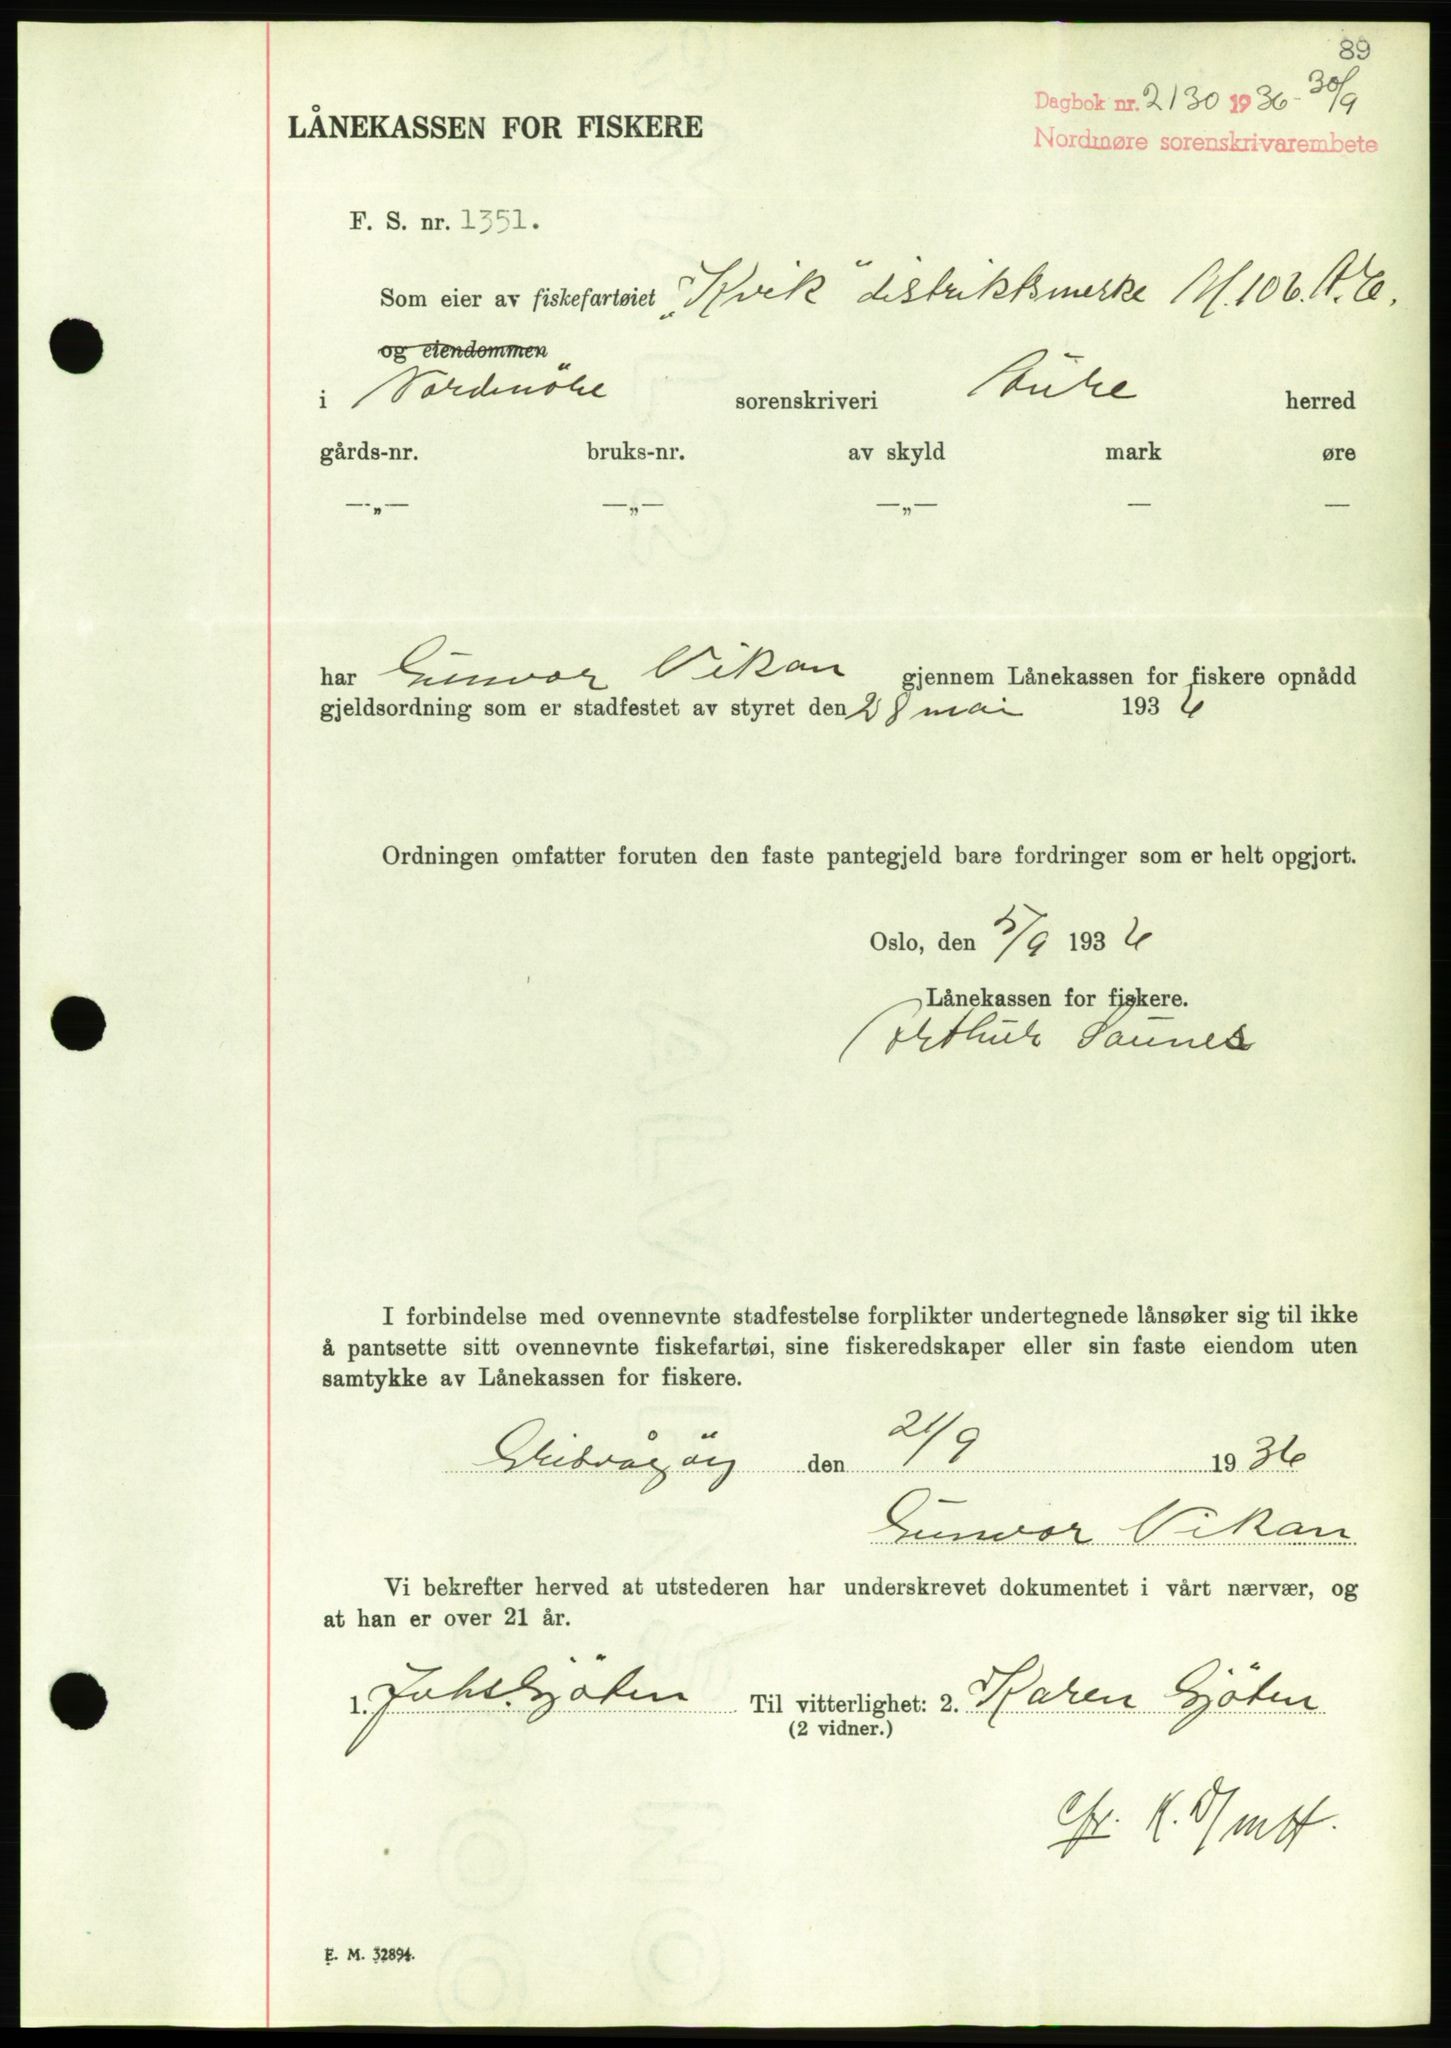 89
Dagbok nr. 2130 1936 - 30/9
Nordmøre sorenskrivarembete
LÅNEKASSEN FOR FISKERE
F. S. nr. 1351.
Som eier av fiskefartøiet „Kvik" distriktsmerke M.106.A.E.
og eiendommen
i Nordmöre sorenskriveri Aure herred
gårds-nr. bruks-nr. av skyld mark øre
—„— —„— —„— — —
har Gunvor Vikan gjennem Lånekassen for fiskere opnådd
gjeldsordning som er stadfestet av styret den 28 mai 1936
Ordningen omfatter foruten den faste pantegjeld bare fordringer som er helt opgjort.
Oslo, den 5/9 1936
Lånekassen for fiskere.
Arthur Saunes
I forbindelse med ovennevnte stadfestelse forplikter undertegnede lånsøker sig til ikke
å pantsette sitt ovennevnte fiskefartøi, sine fiskeredskaper eller sin faste eiendom uten
samtykke av Lånekassen for fiskere.
Grisvågöy den 21/9 1936
Gunvor Vikan
Vi bekrefter herved at utstederen har underskrevet dokumentet i vårt nærvær, og
at han er over 21 år.
1. Johs. Gjöten Til vitterlighet: 2. Karen Gjöten
(2 vidner.)
E. M. 32894.